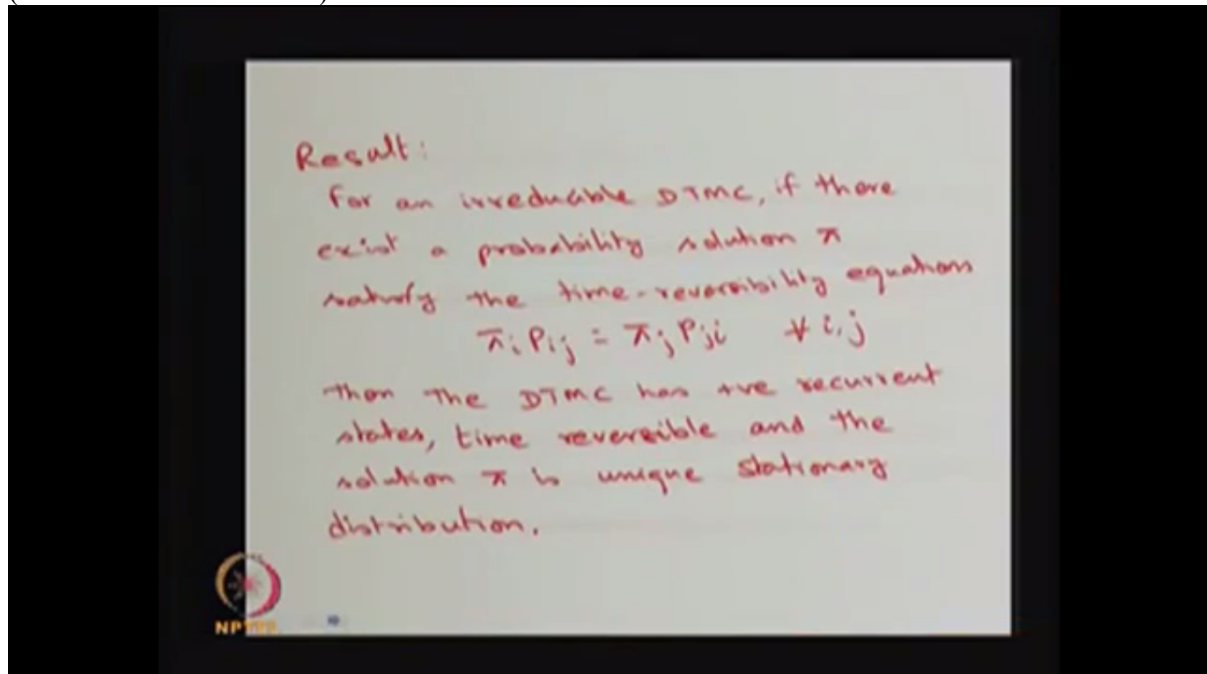 Result:
For an irreducible DTMC, if there
exist a probability solution π
satisfy the time-reversibility equations
πi Pij = πj Pji ∀ i,j
then the DTMC has +ve recurrent
states, time reversible and the
solution π is unique stationary
distribution.
NPTEL